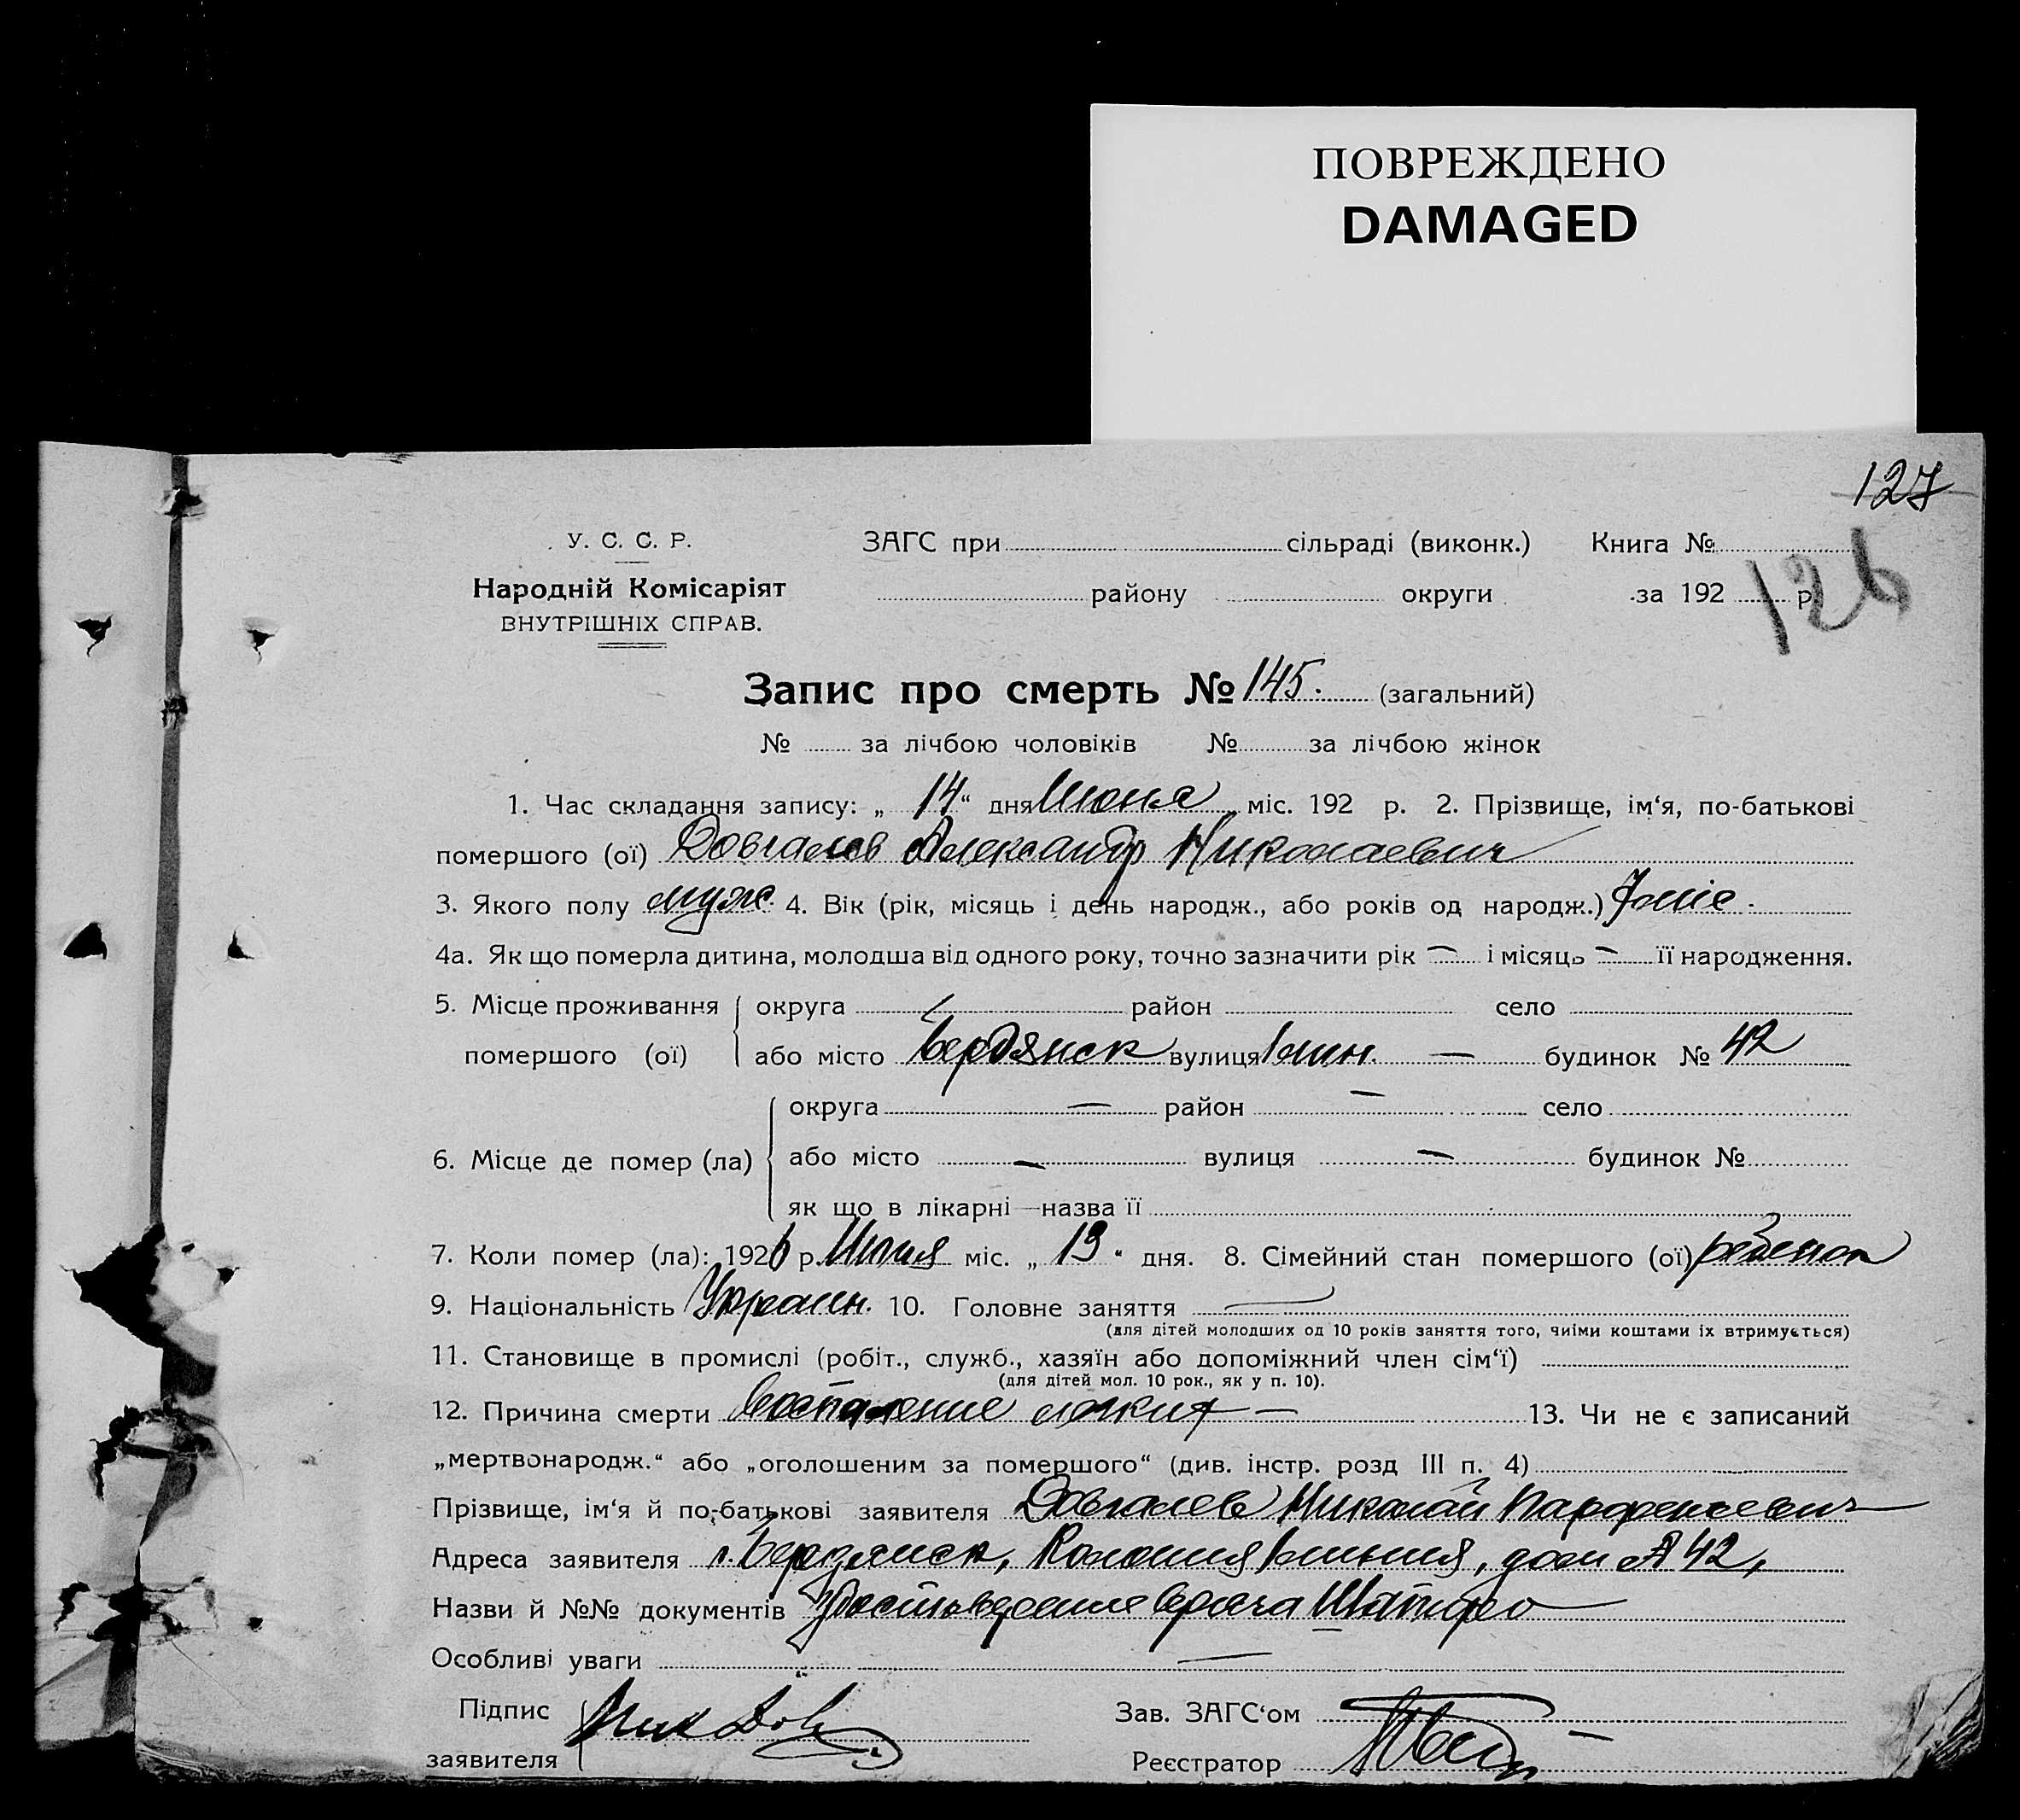 ПОВРЕЖДЕНО
DAMAGED
127
126
У. С. С. Р.
Народній Комісаріят
ВНУТРІШНІХ СПРАВ.
ЗАГС при сільраді (виконк.) Книга №
району округи за 192 р.
Запис про смерть № 145. (загальний)
№ за лічбою чоловіків № за лічбою жінок
1. Час складання запису: „14“ дня Июня міс. 192 р. 2. Прізвище, ім‘я, по-батькові
помершого (ої) Довгалев Александр Николаевич
3. Якого полу муж. 4. Вік (рік, місяць і день народж., або років од народж.)
4а. Як що померла дитина, молодша від одного року, точно зазначити рік — і місяць — її народження.
5. Місце проживання помершого (ої) округа район село
або місто Бердянск вулиця будинок № 42
6. Місце де помер (ла) округа — район — село
або місто — вулиця — будинок №
як що в лікарні—назва її
7. Коли помер (ла): 1926 р. Июня міс. „13“ дня. 8. Сімейний стан помершого (ої) ребенок
9. Національність Украин. 10. Головне заняття —
(для дітей молодших од 10 років заняття того, чиїми коштами їх втримується)
11. Становище в промислі (робіт., служб., хазяїн або допоміжний член сім‘ї)
(для дітей мол. 10 рок., як у п. 10).
12. Причина смерти Воспаление легких — 13. Чи не є записаний
„мертвонародж.“ або „оголошеним за помершого“ (див. інстр. розд III п. 4)
Прізвище, ім‘я й по-батькові заявителя Довгалев Николай Парфенеевич
Адреса заявителя г. Бердянск, Колония дом № 42,
Назви й №№ документів Удостоверение врача Шапиро
Особливі уваги —
Підпис заявителя Ник Дов
Зав. ЗАГС‘ом
Реєстратор